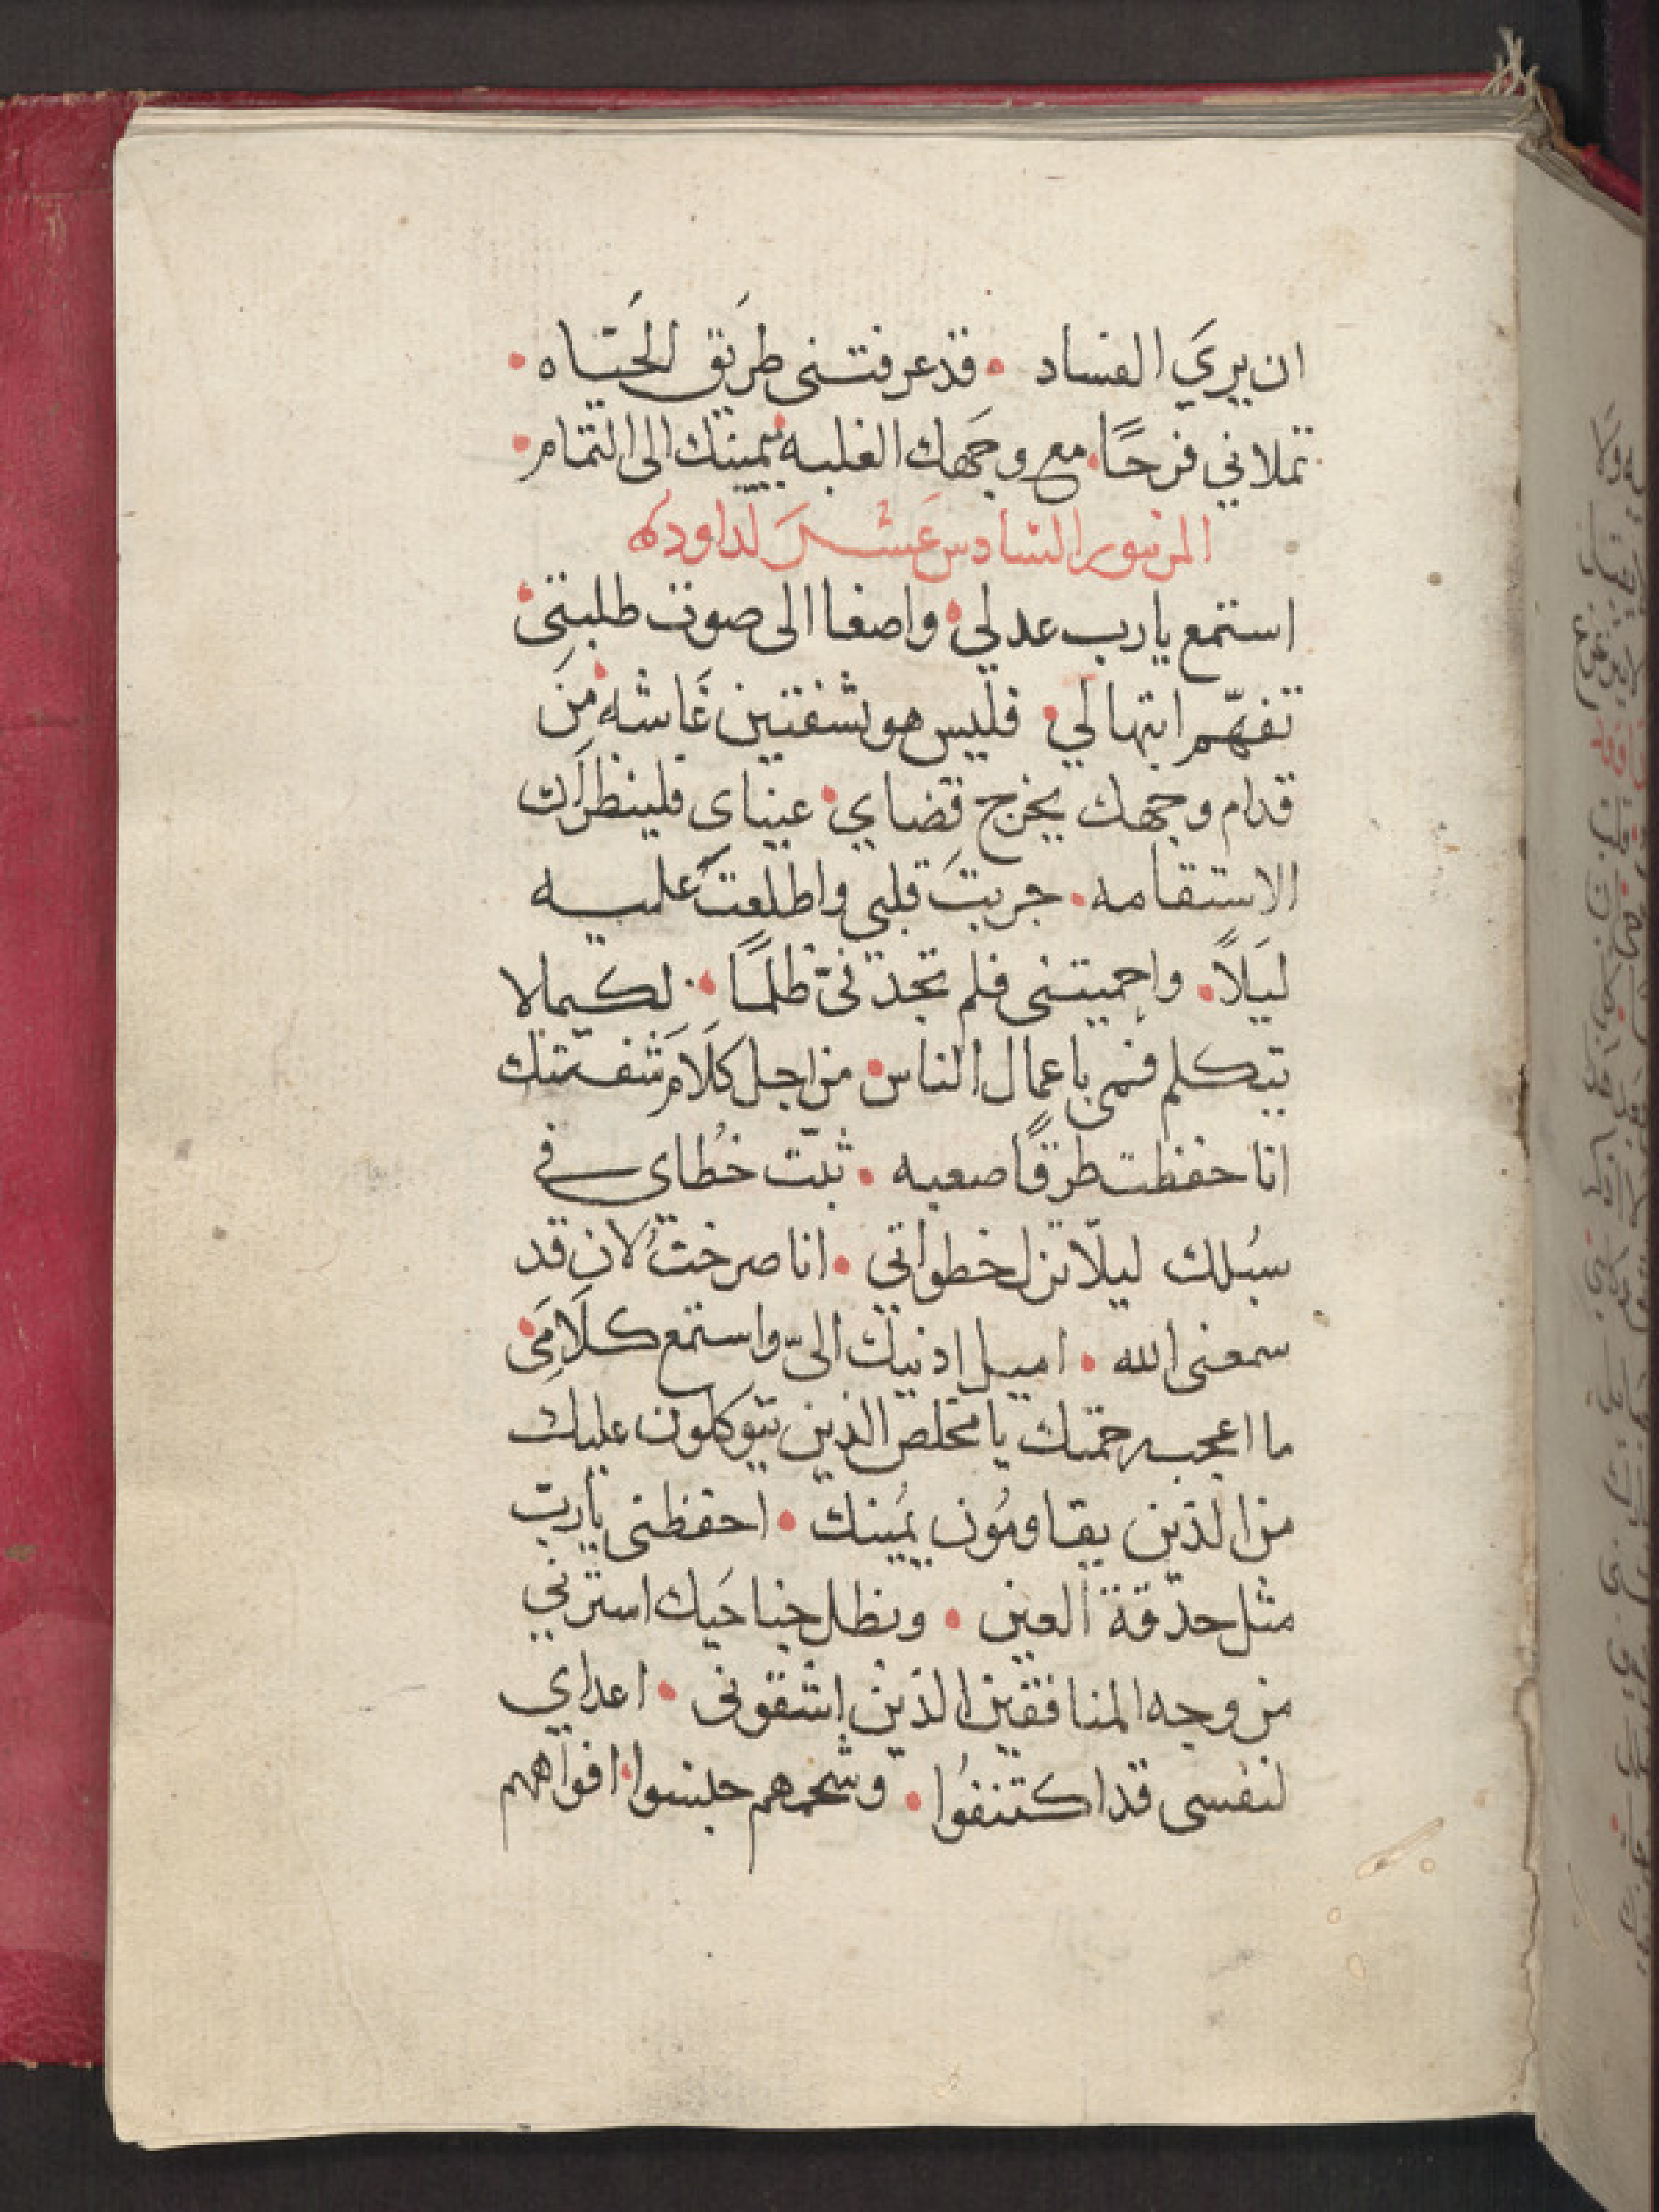 ان يريَ الفساد • قد عرفتنى طرَيق الحَيَاه •
تملاني فرحًا • مع وجَهك الغلبه بيمينك الى التمام •
المزمور السادس عَشر لداود
استمع يارب عدلي • واصغا الى صوت طلبتِى •
تفهّم ابتهالي • فليس هو بشفتين غَاشه • مِن
قدام وجهك يخرج قضاي • عيناى فلينظرَان
الاستقامه • جربتَ قلبى واطلعتَ عليه
ليَلاً • واحميتنى فلم تجد فىّ ظلمًا • لكيما لا
يتكلم فمى باعمال الناس • من اجل كلَامَ شفتيك
انا حفظت طرقًا صعبه • ثبّت خُطاي في
سُبلك ليلّا تزل خطواتى • انا صرختُ لان قد
سمعنى الله • اميل اذنيك الىّ واستمع كلَامِى •
ما اعجب رحمتك يا مخلص الذين يتوكلون عليك
من الذين يقاومُون يمينك • احفظنى يارب
مثل حدَقة العين • وبظل جناحَيك استرني
من وجه المنافقين الذين اشقونى • اعداي
لنفسى قد اكتنفوُا • وشحمهم حبسوا • افواههم